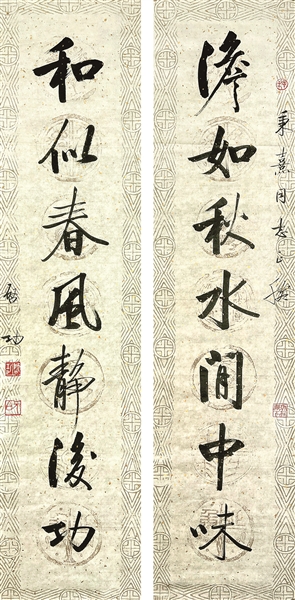 秉熹同志正腕
澹如秋水閒中味
和似春風靜後功
啟功